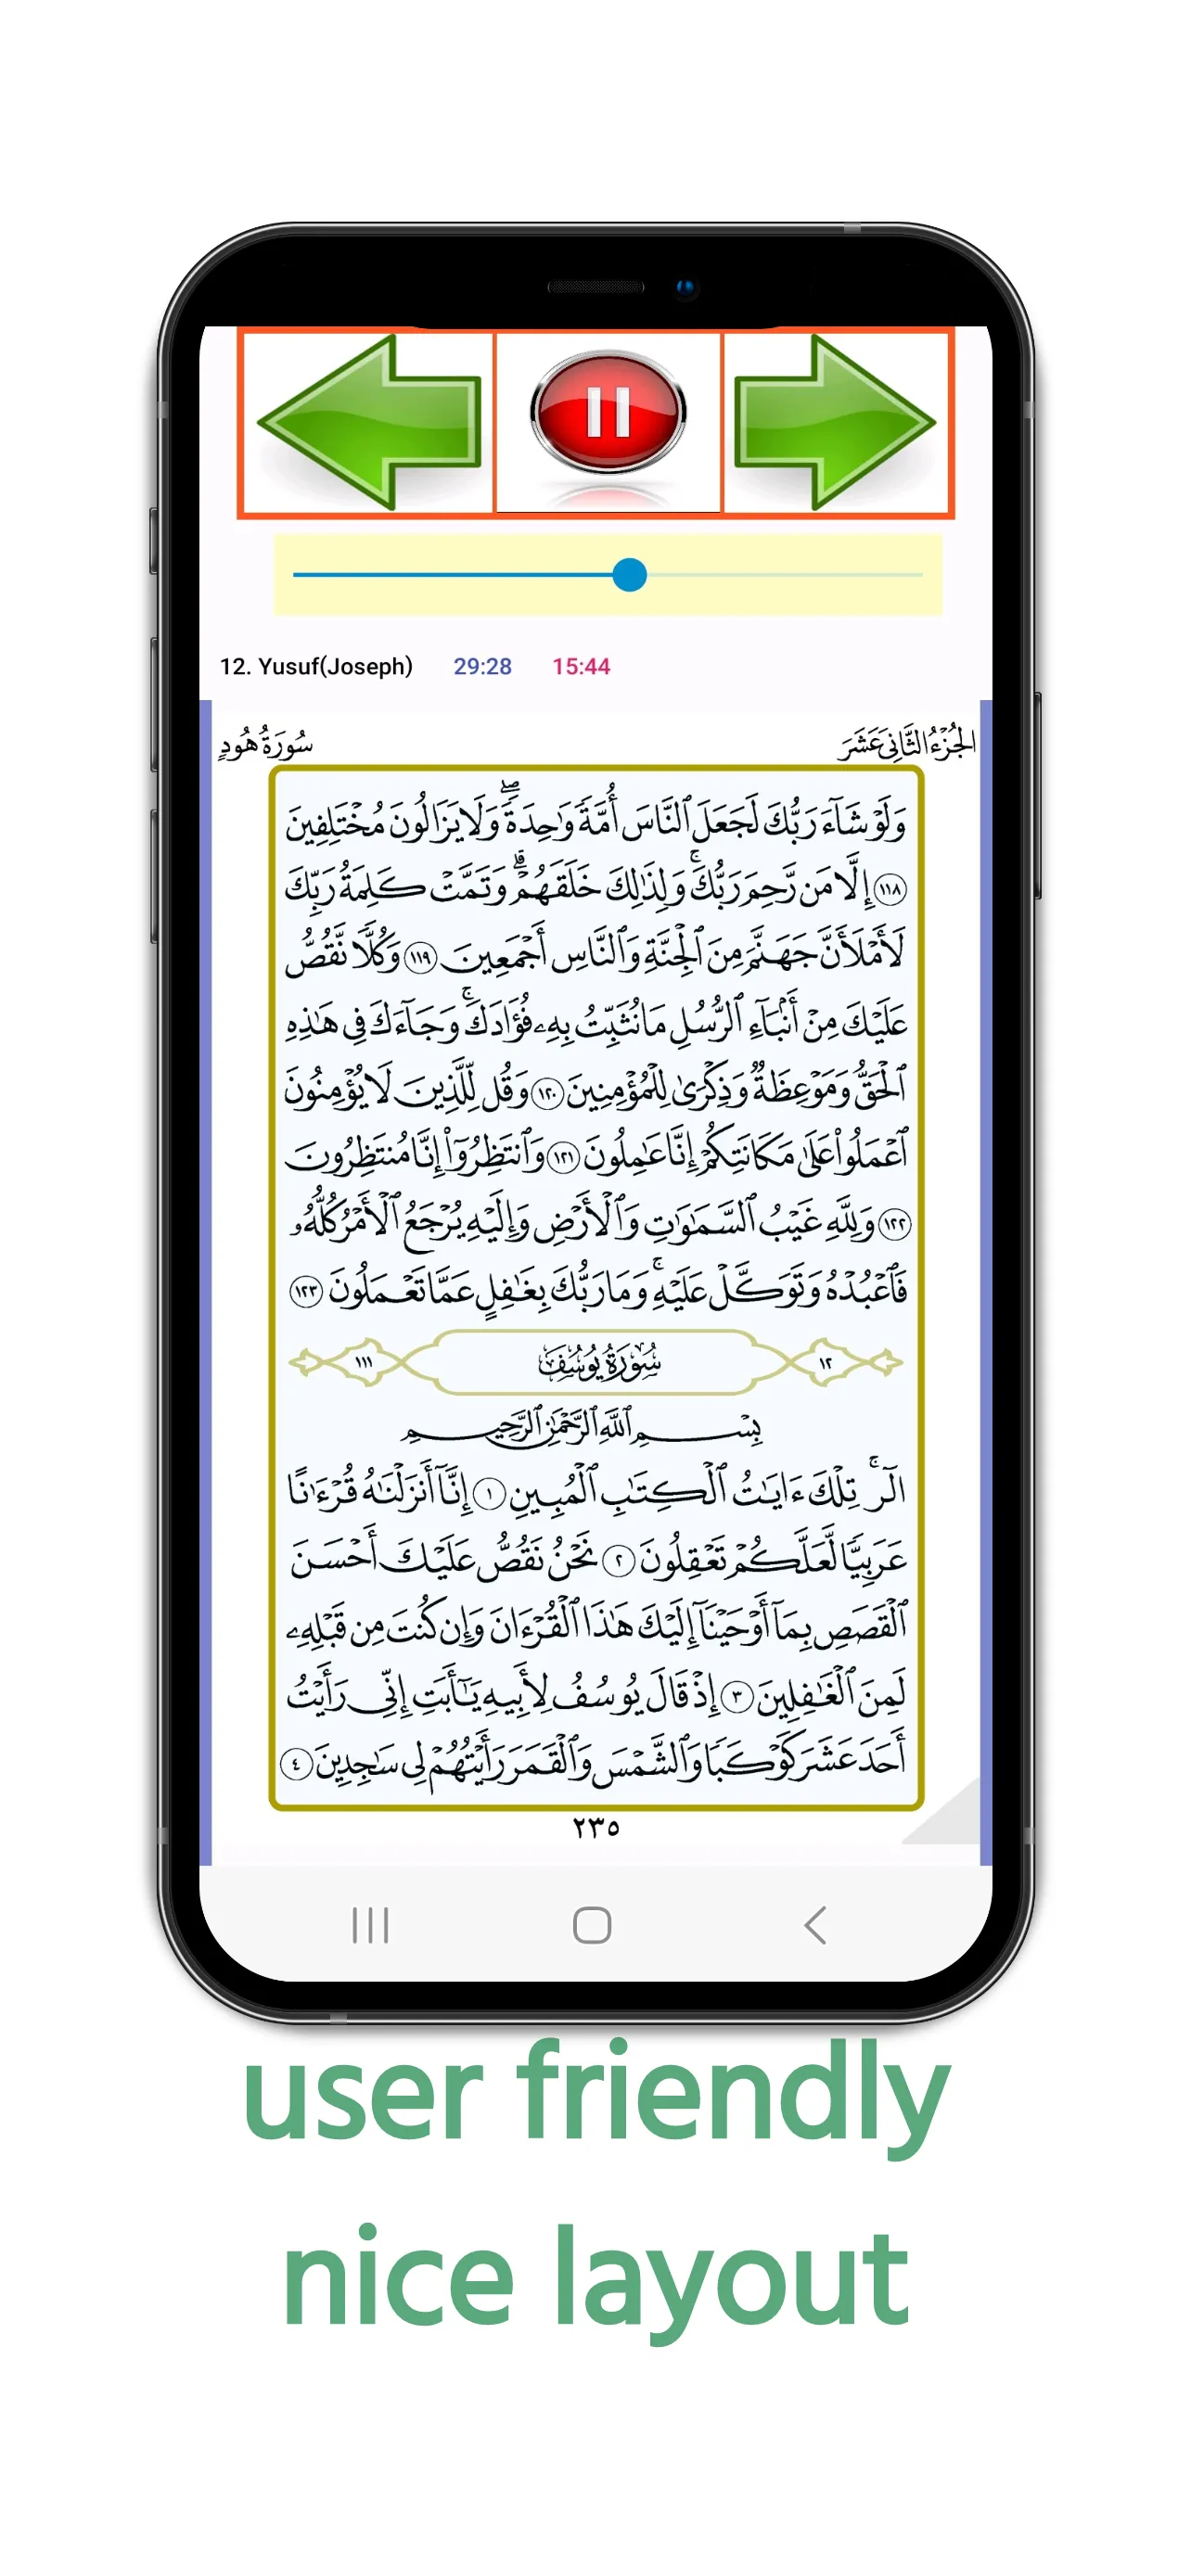 12. Yusuf(Joseph) 29:28 15:44
الجُزْءُ الثَّانِي عَشَرَ سُورَةُ هُودٍ
وَلَوْ شَآءَ رَبُّكَ لَجَعَلَ ٱلنَّاسَ أُمَّةٗ وَٰحِدَةٗۖ وَلَا يَزَالُونَ مُخۡتَلِفِينَ
١١٨ إِلَّا مَن رَّحِمَ رَبُّكَۚ وَلِذَٰلِكَ خَلَقَهُمۡۗ وَتَمَّتۡ كَلِمَةُ رَبِّكَ
لَأَمۡلَأَنَّ جَهَنَّمَ مِنَ ٱلۡجِنَّةِ وَٱلنَّاسِ أَجۡمَعِينَ ١١٩ وَكُلّٗا نَّقُصُّ
عَلَيۡكَ مِنۡ أَنۢبَآءِ ٱلرُّسُلِ مَا نُثَبِّتُ بِهِۦ فُؤَادَكَۚ وَجَآءَكَ فِي هَٰذِهِ
ٱلۡحَقُّ وَمَوۡعِظَةٞ وَذِكۡرَىٰ لِلۡمُؤۡمِنِينَ ١٢٠ وَقُل لِّلَّذِينَ لَا يُؤۡمِنُونَ
ٱعۡمَلُواْ عَلَىٰ مَكَانَتِكُمۡ إِنَّا عَٰمِلُونَ ١٢١ وَٱنتَظِرُوٓاْ إِنَّا مُنتَظِرُونَ
١٢٢ وَلِلَّهِ غَيۡبُ ٱلسَّمَٰوَٰتِ وَٱلۡأَرۡضِ وَإِلَيۡهِ يُرۡجَعُ ٱلۡأَمۡرُ كُلُّهُۥ
فَٱعۡبُدۡهُ وَتَوَكَّلۡ عَلَيۡهِۚ وَمَا رَبُّكَ بِغَٰفِلٍ عَمَّا تَعۡمَلُونَ ١٢٣
١٢ سُورَةُ يُوسُفَ ١١١
بِسۡمِ ٱللَّهِ ٱلرَّحۡمَٰنِ ٱلرَّحِيمِ
الٓرۚ تِلۡكَ ءَايَٰتُ ٱلۡكِتَٰبِ ٱلۡمُبِينِ ١ إِنَّآ أَنزَلۡنَٰهُ قُرۡءَٰنًا
عَرَبِيّٗا لَّعَلَّكُمۡ تَعۡقِلُونَ ٢ نَحۡنُ نَقُصُّ عَلَيۡكَ أَحۡسَنَ
ٱلۡقَصَصِ بِمَآ أَوۡحَيۡنَآ إِلَيۡكَ هَٰذَا ٱلۡقُرۡءَانَ وَإِن كُنتَ مِن قَبۡلِهِۦ
لَمِنَ ٱلۡغَٰفِلِينَ ٣ إِذۡ قَالَ يُوسُفُ لِأَبِيهِ يَٰٓأَبَتِ إِنِّي رَأَيۡتُ
أَحَدَ عَشَرَ كَوۡكَبٗا وَٱلشَّمۡسَ وَٱلۡقَمَرَ رَأَيۡتُهُمۡ لِي سَٰجِدِينَ ٤
٢٣٥
user friendly
nice layout